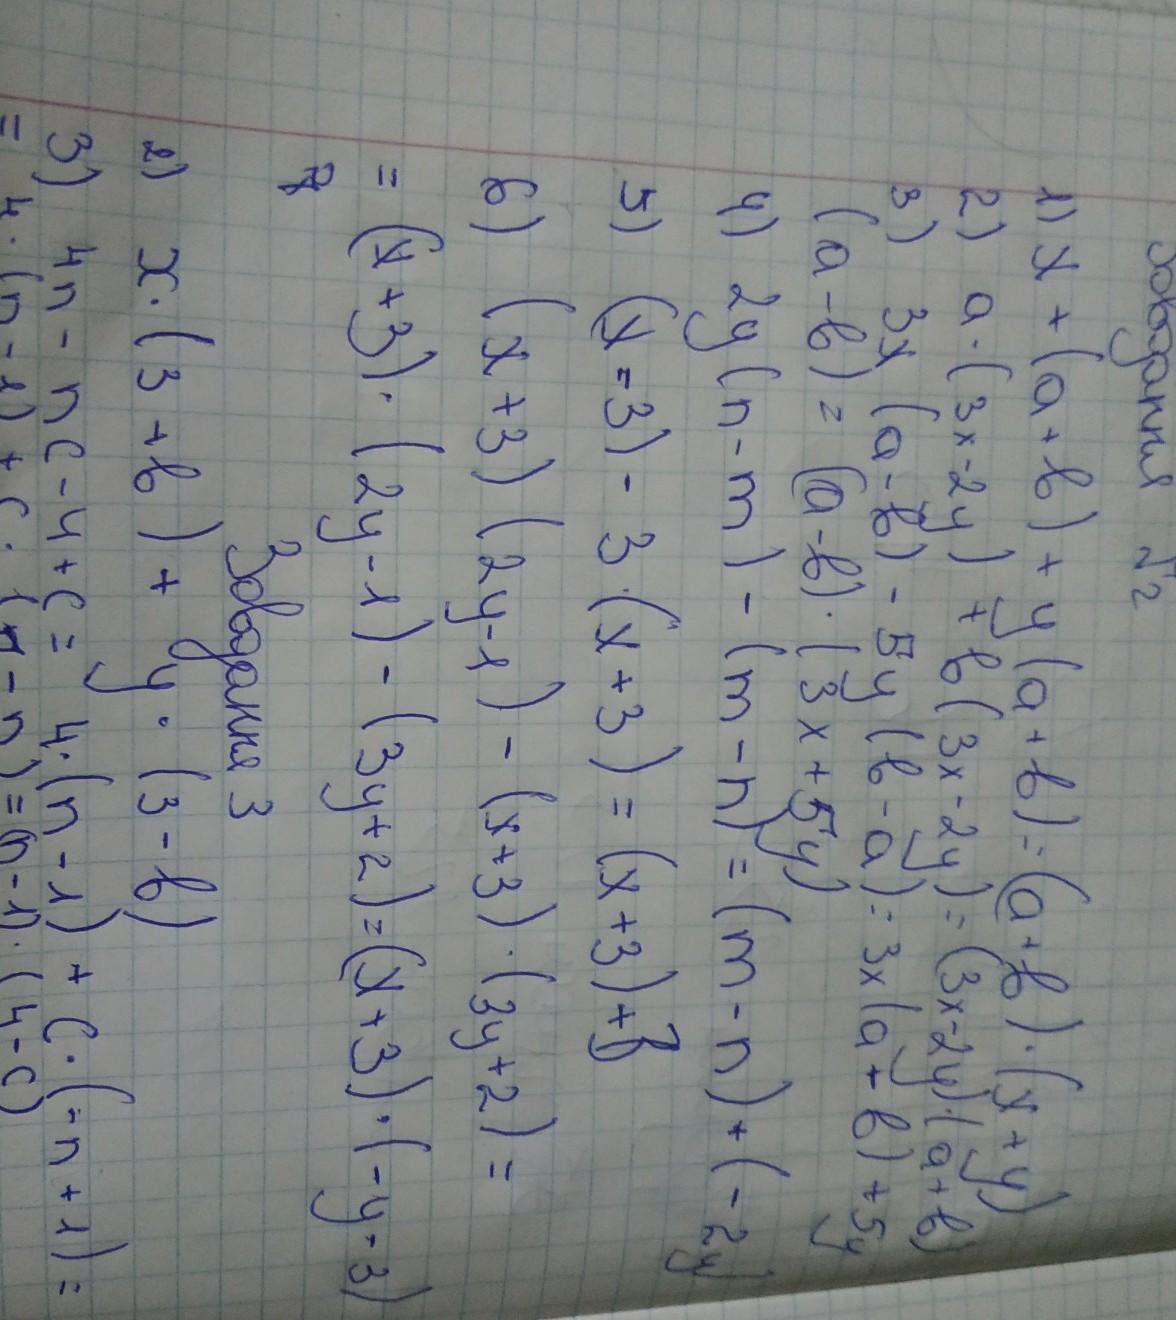 Завдання №2
1) x + (a + b) + y (a + b) = (a + b) · (x + y)
2) a · (3x - 2y) + b (3x - 2y) = (3x - 2y) · (a + b)
3) 3x (a - b) - 5y (b - a) = 3x (a + b) + 5y
(a - b) = (a - b) · (3x + 5y)
4) 2y (n - m) - (m - n) = (m - n) + (-2y)
5) (x = 3) - 3 · (x + 3) = (x + 3) +
6) (x + 3) (2y - 1) - (x + 3) · (3y + 2) =
= (x + 3) · (2y - 1) - (3y + 2) = (x + 3) · (- y - 3)
Завдання 3
2) x · (3 + b) + y · (3 - b)
3) 4n - nc - 4 + c = 4 · (n - 1) + c · (-n + 1) =
= 4 · (n - 1) + c · (1 - n) = (n - 1) · (4 - c)